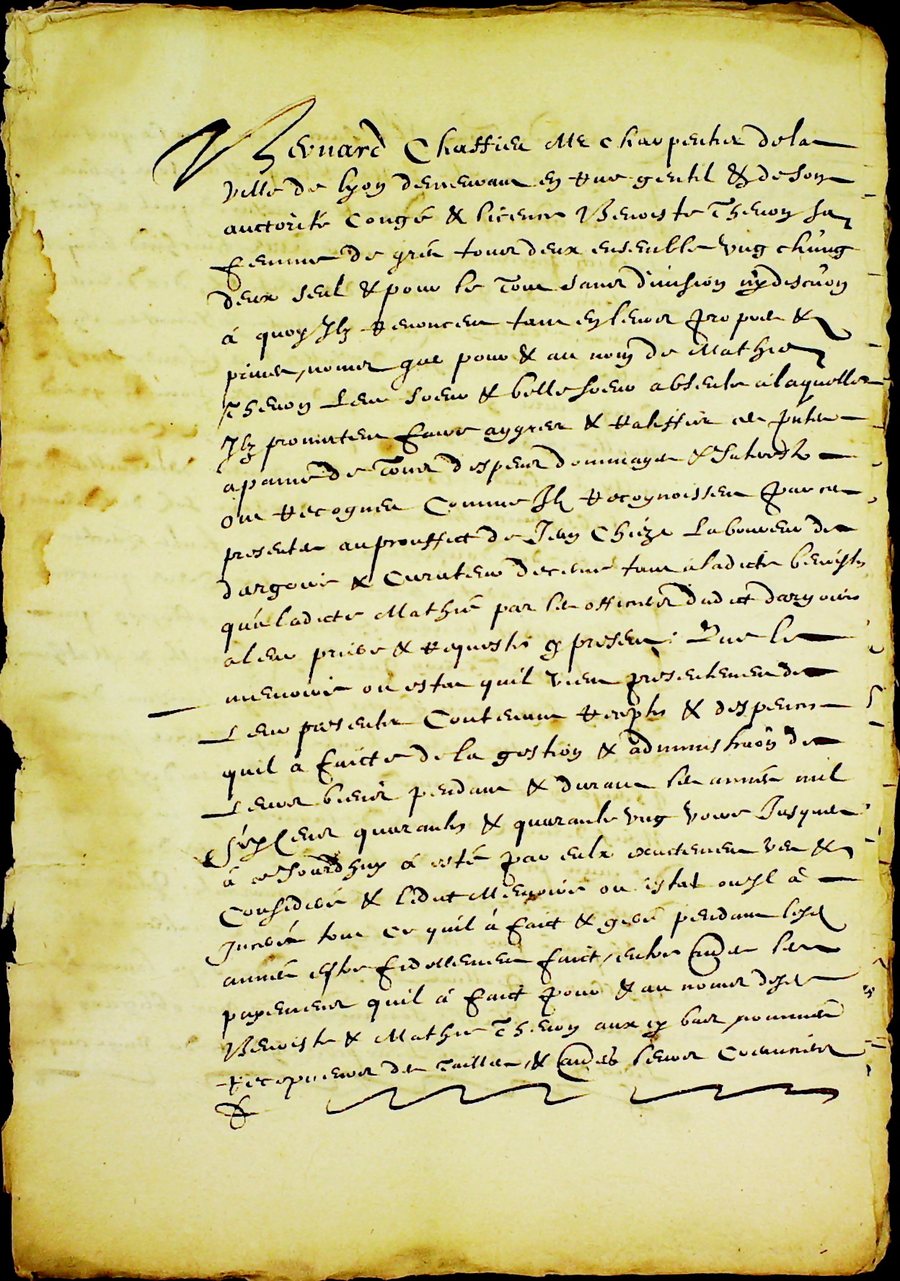 Bernard Chaffier Me charpentier de la
ville de lyon demeurant en rue gentil & de son
auctorité congé & licence Benoiste Thevon sa
femme de gré tous deux ensemble ung chũng
deux seul & pour le tout sans division ny discũon
à quoy Ilz renoncent tant en leurs propres &
privez noms que pour & au nom de Mathie
Thevon leur soeur & belle soeur absente a laquelle
Ilz promettent faire aggreer & ratiffier ces pntes
a peine de tous despens dommages & Interestz
ont recogneu Comme Ilz recognoissent par ces
presentes au prouffict de Jean Chieze laboureur de
dargoire & Curateur decerné tant a ladicte benoiste
qu'a ladicte Mathie par les officiers dudict dargoire
a leur priere & requeste cy present: Que le
memoire ou estat quil vient presentement de
leur presenter Contenant receptes & despences
quil a faicte de la gestion & administraõn de
leurs biens pendant & durant les années mil
six cens quarante & quarante ung voire Jusques
à ce Jourdhuy à esté par eulx exactement veu &
Consideré & ledict Memoire ou estat ou Il a
Inseré tout ce quil à faict & geré pendant lesd
années estre fidellement faict, entre auẽs les
payemens quil à faict pour & au nom desd
Benoiste & Mathie Thevon aux cy bas nommés
recepveurs des Tailles, & auẽs leurs Creanciers
&